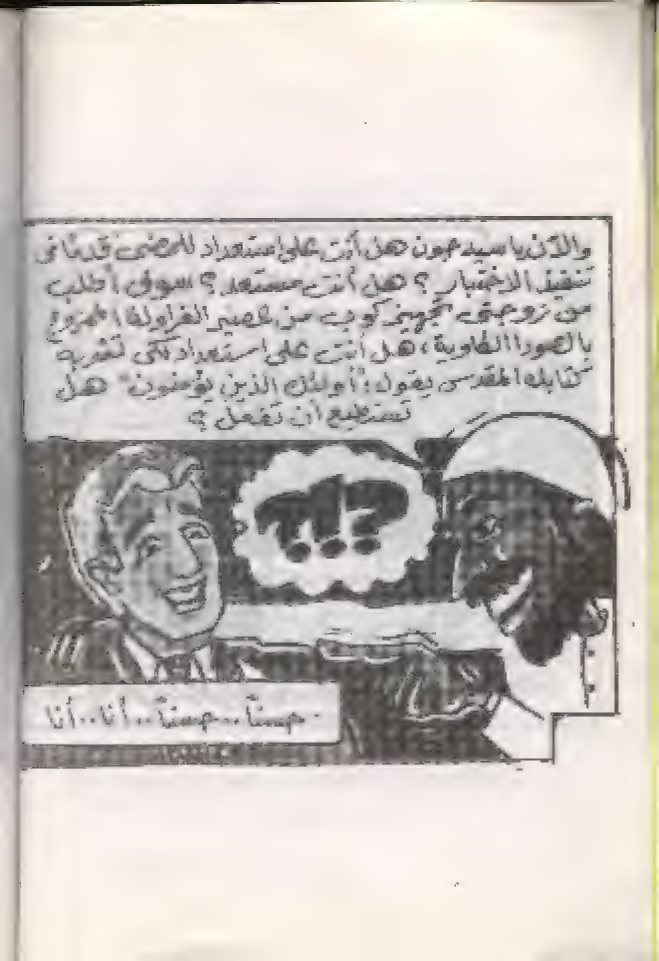 والآن يا سيد جون هل أنت على استعداد للمضى قدمًا فى
تنفيذ الاختبار؟ هل أنت مستعد؟ سوف أطلب
من زوجتى تجهيز كوب من عصير الفراولة الممزوج
بالصودا الكاوية، هل أنت على استعداد لكى تشربه
كتابك المقدس يقول: "أولئك الذين يؤمنون" هل
تستطيع أن تفعل؟
؟!؟
حسنًا.. حسنًا.. أنا.. أنا